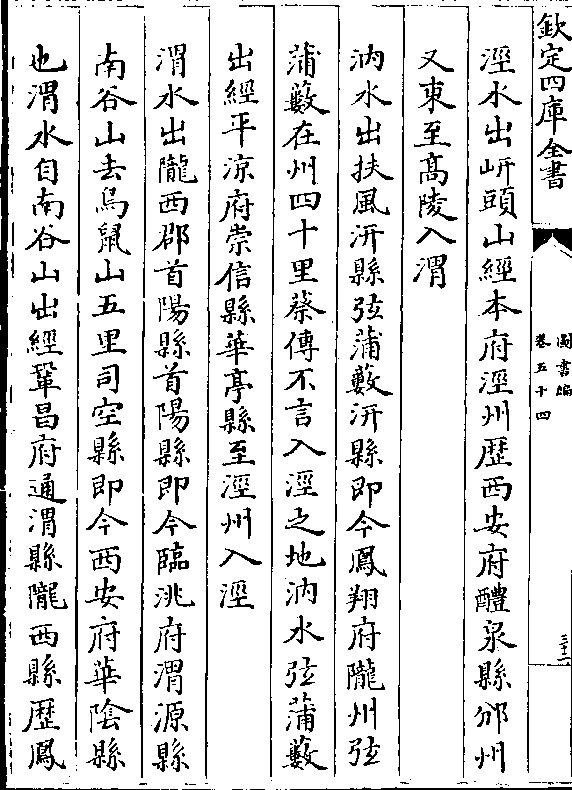 欽定四庫全書
圖書編
卷五十四
三十二
涇水出岍頭山經本府涇州歷西安府醴泉縣邠州
又東至髙陵入渭
汭水出扶風汧縣弦蒲藪汧縣即今鳳翔府隴州弦
蒲藪在州四十里蔡傳不言入涇之地汭水弦蒲藪
出經平涼府崇信縣華亭縣至涇州入涇
渭水出隴西郡首陽縣首陽縣即今臨洮府渭源縣
南谷山去鳥鼠山五里司空縣即今西安府華陰縣
也渭水自南谷山出經鞏昌府通渭縣隴西縣歷鳳